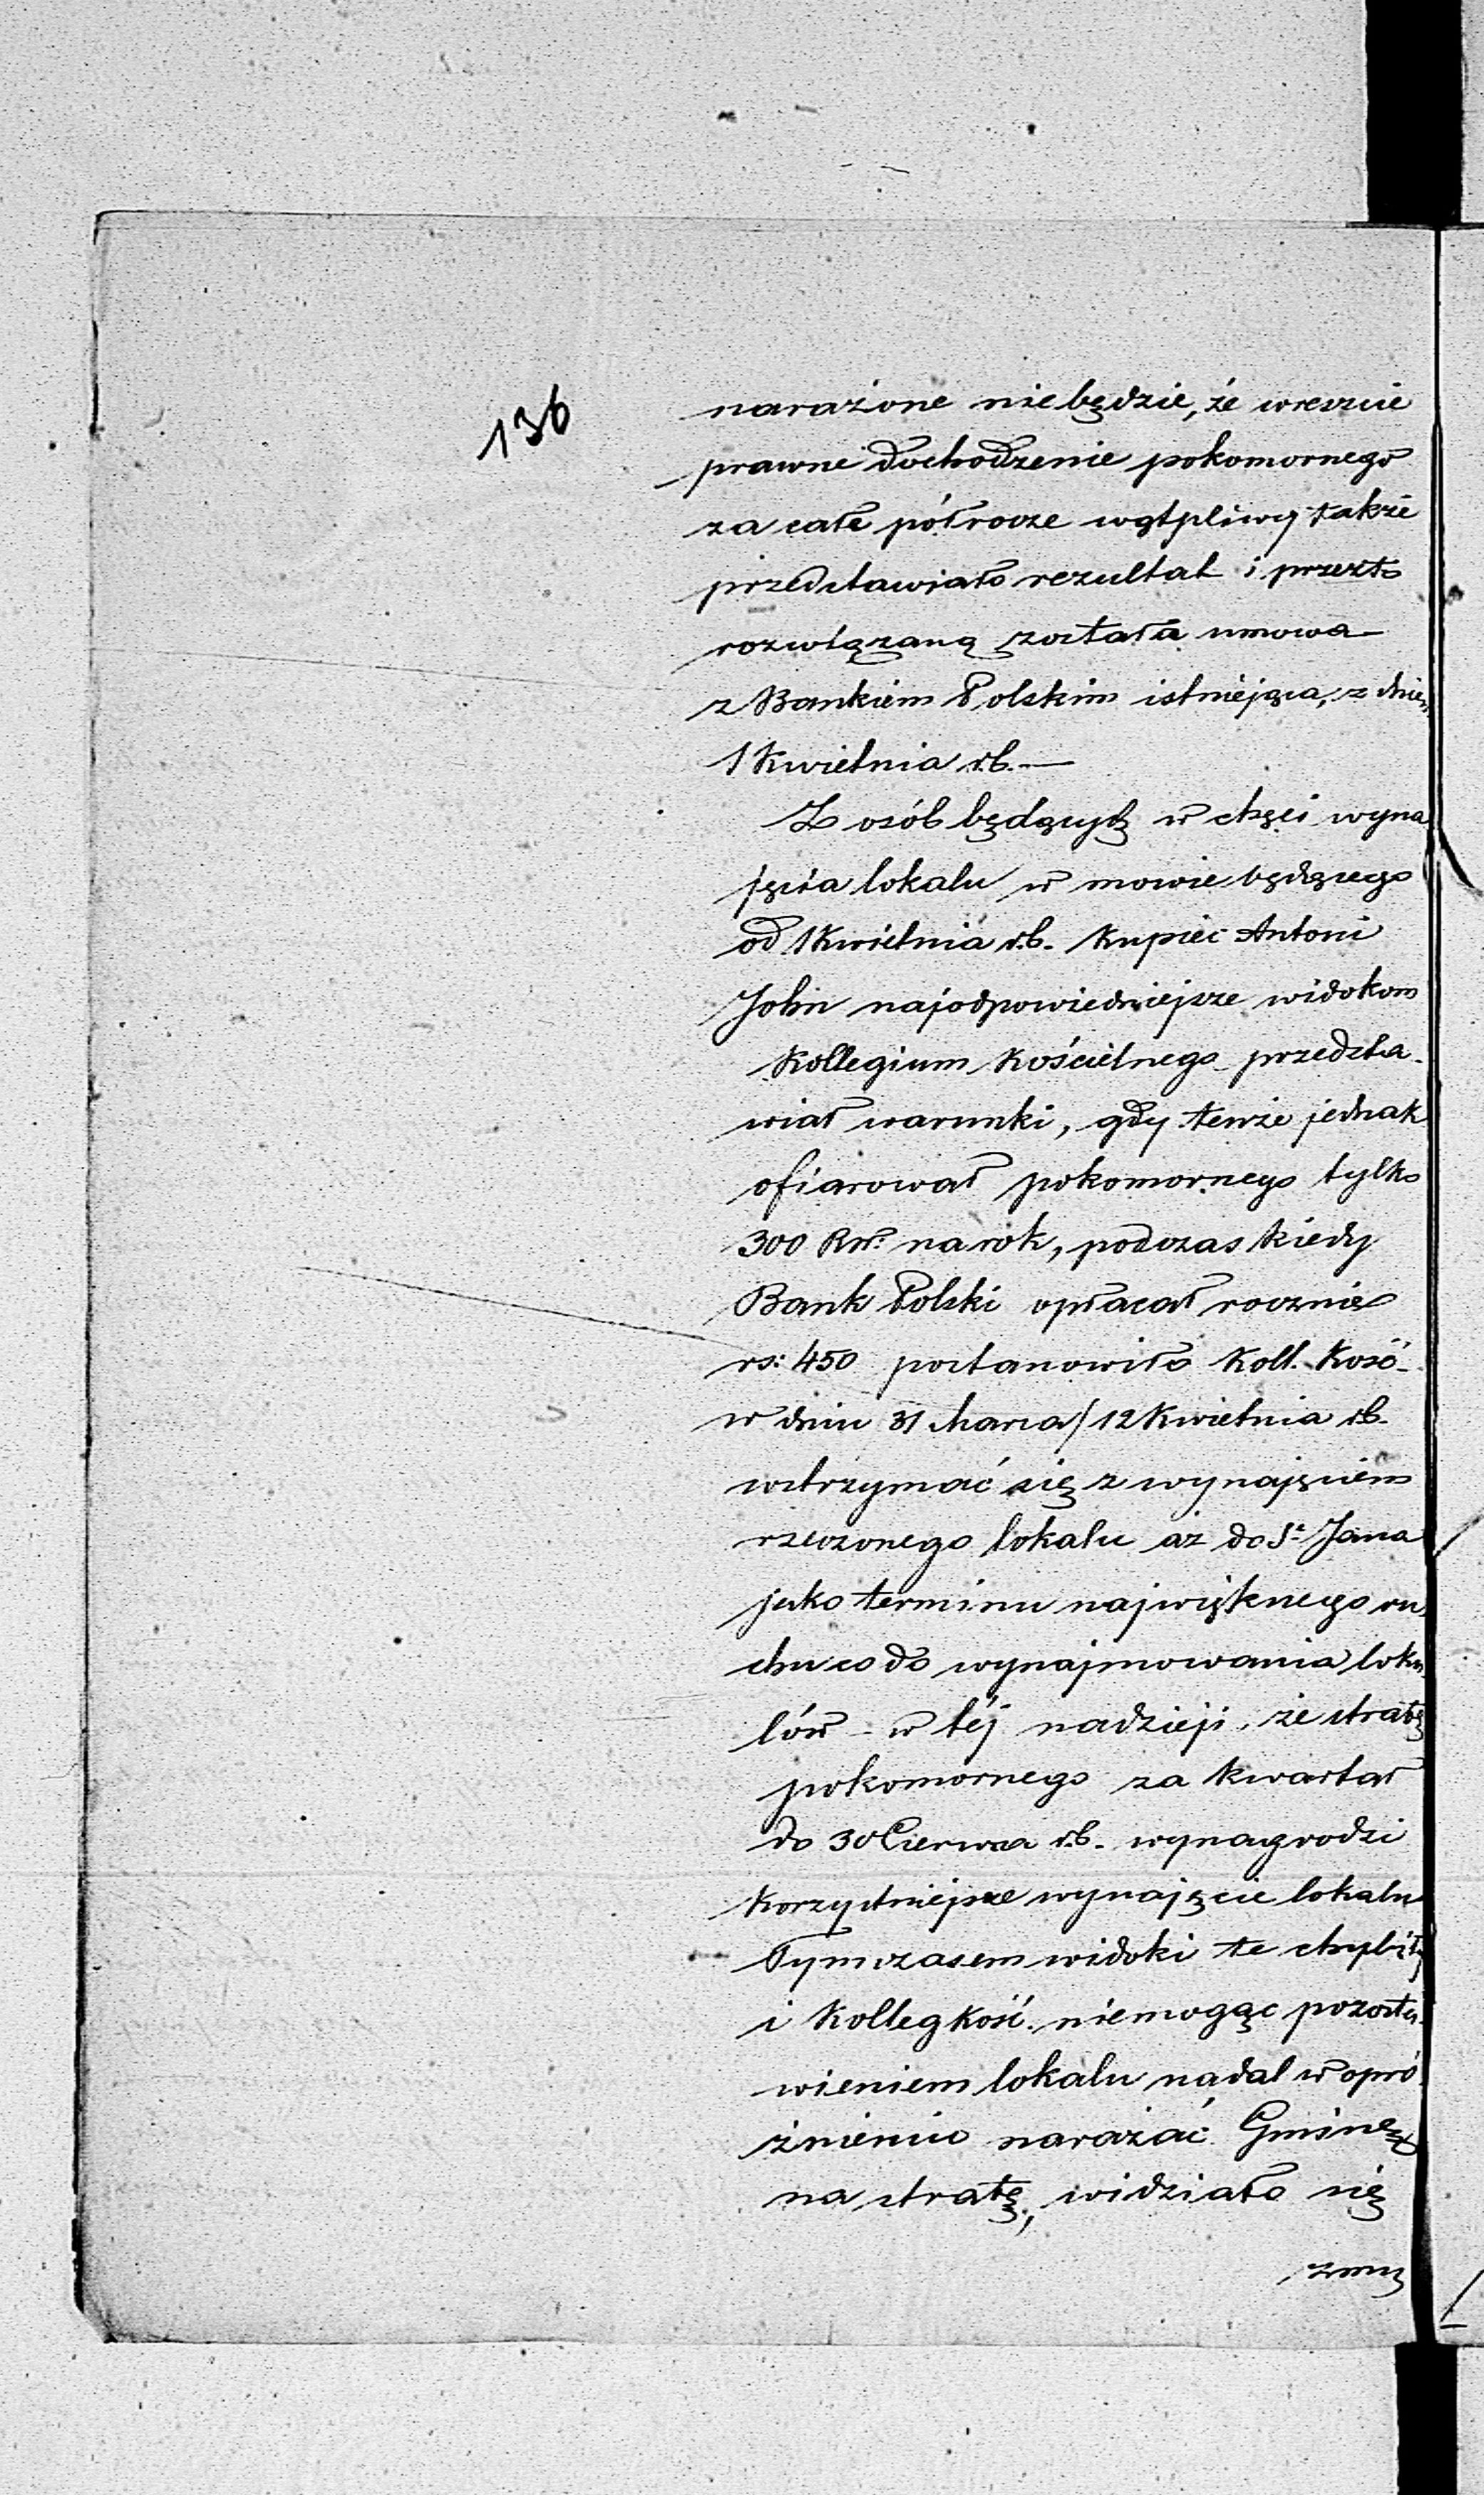 136
narażone nie będzie, że wreszcie
prawne dochodzenie pokomornego
za całe półrocze wątpliwy także
przedstawiało rezultat i przezto
rozwiązaną została umowa
z Bankiem Polskim istniejąca, z dniem
1 Kwietnia r.b. —
Z osób będących w chęci wyna
jęcia lokalu w mowie będącego
od 1 Kwietnia r.b. Kupiec Antoni
John najodpowiedniejsze widokom
Kollegium Kościelnego przedsta-
wiał warunki, gdy tenże jednak
ofiarował pokomornego tylko
300 Rsr. na rok, podczas kiedy
Bank Polski opłacał rocznie
rs: 450 postanowiło Koll. Kość.
w dniu 31 Marca/12 Kwietnia r.b.
wstrzymać się z wynajęciem
rzeczonego lokalu aż do Sº Jana
jako terminu największego ru-
chu co do wynajmowania loka-
lów - w téj nadzieji, że stratę
pokomornego za kwartał
do 30 Czerwca r.b. wynagrodzi
korzystniejsze wynajęcie lokalu
Tymczasem widoki te chybiły
i Kolleg Kość. niemogąc pozosta-
wieniem lokalu nadal w opró-
żnieniu narażać Gminę
na stratę, widziało się
zmu